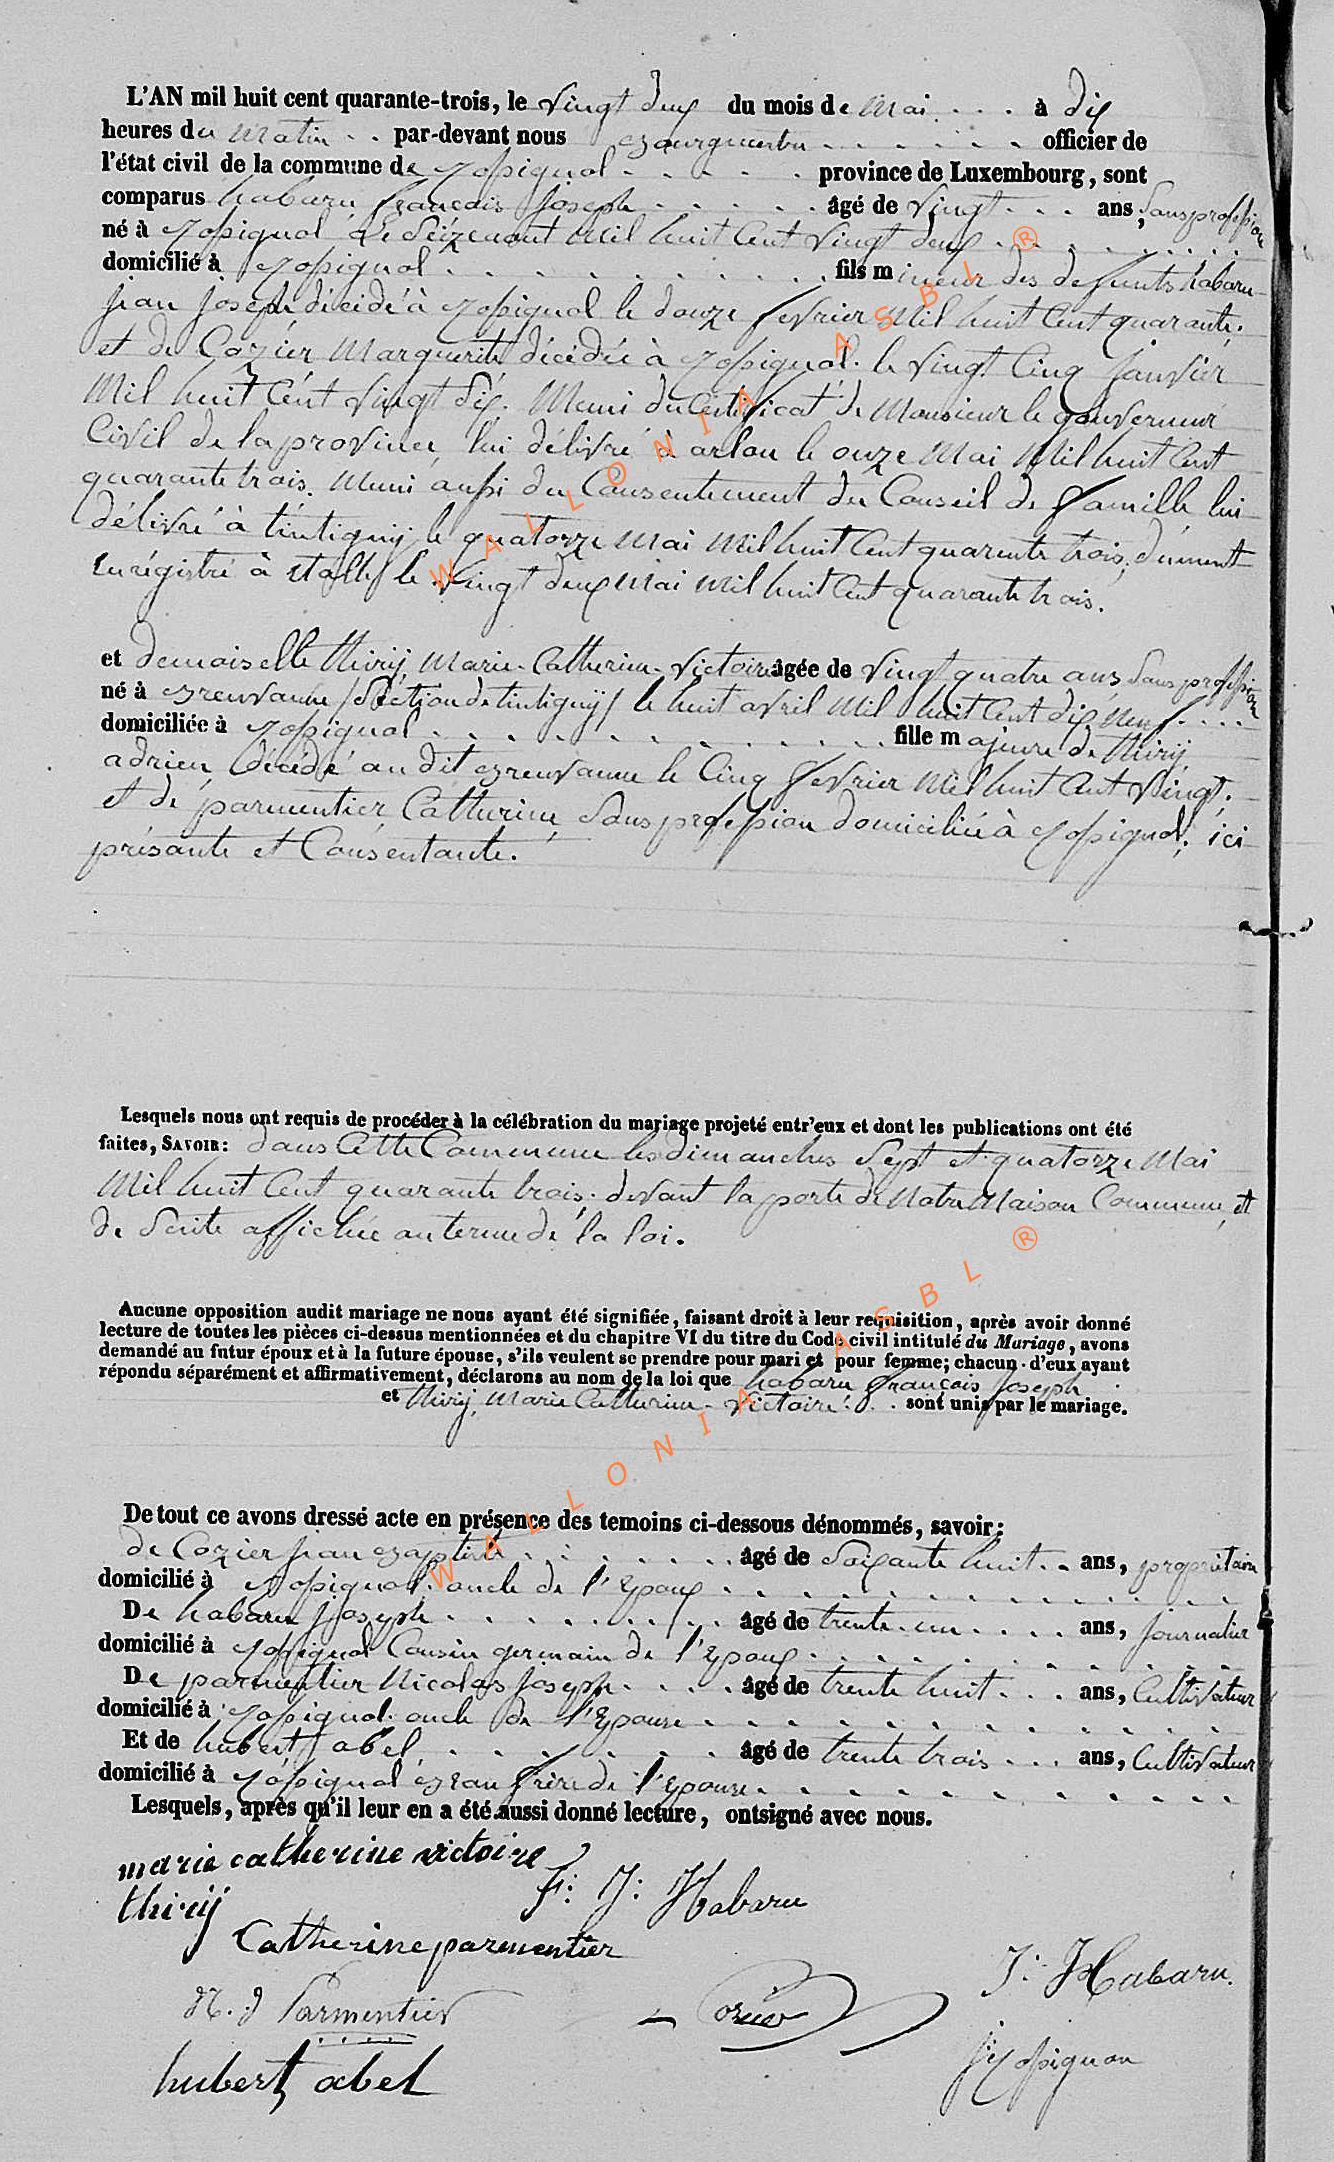 L'AN mil huit cent quarante-trois, le vingt deux du mois de Mai à dix
heures du Matin par-devant nous Bourguemtre officier de
l'état civil de la commune de rossignol province de Luxembourg, sont
comparus habaru françois Joseph âgé de vingt ans, Sans profession
né à rossignol Le Seize août Mil huit Cent vingt deux
domicilié à rossignol fils mineur des defunts habaru
jean Joseph décédé à rossignol le douze fevrier Mil huit Cent quarante.
et de Cozier Marguerite décédée à rossignol. le vingt Cinq Janvier
Mil huit Cent vingt Six. Muni du Certificat de Monsieur le gouverneur
Civil de la province, lui délivré à arlon le onze Mai Mil huit Cent
quarante trois. Muni aussi du Consentement du Conseil de famille lui
délivré à tintigny le quatorze Mai Mil huit Cent quarante trois, dument
Enrégistré à Etalle le vingt deux Mai Mil huit Cent quarante trois.
et demoiselle thirÿ Marie-Catherine-Victoire âgée de vingt quatre ans Sans profession
né à Breuvanne /Section de tintigny/ le huit avril Mil huit Cent dix Neuf
domiciliée à rossignol fille majeure de thirÿ
adrien, décédé au dit Breuvanne le Cinq fevrier Mil huit Cent vingt.
et de parmentier Catherine, Sans profession domiciliée à rossignol; ici
présante et Consentante.
Lesquels nous ont requis de procéder à la célébration du mariage projeté entr'eux et dont les publications ont été
faites, SAVOIR: dans Cette Commune les dimanches Sept et quatorze Mai
Mil huit Cent quarante trois. devant la porte de Notre Maison Commune, et
de Suite affichée au terme de la loi.
Aucune opposition audit mariage ne nous ayant été signifiée, faisant droit à leur requisition, après avoir donné
lecture de toutes les pièces ci-dessus mentionnées et du chapitre VI du titre du Code civil intitulé du Mariage, avons
demandé au futur époux et à la future épouse, s'ils veulent se prendre pour mari et pour femme; chacun d'eux ayant
répondu séparément et affirmativement, déclarons au nom de la loi que habaru françois Joseph
et thirÿ, Marie Catherine-Victoire sont unis par le mariage.
De tout ce avons dressé acte en présence des temoins ci-dessous dénommés, savoir:
de Cozier jean Baptiste âgé de Soixante huit ans, propriétaire
domicilié à rossignol. oncle de l'Epoux
De habaru Joseph âgé de trente-un ans, journalier
domicilié à rossignol Cousin germain de l'Epoux
De parmentier Nicolas Joseph âgé de trente huit ans, Cultivateur
domicilié à rossignol. oncle de l'Epouse
Et de hubert, abel âgé de trente trois ans, Cultivateur
domicilié à rossignol Beau frère de l'Epouse
Lesquels, après qu'il leur en a été aussi donné lecture, ont signé avec nous.
marie catherine victoire
thirÿ
F: J: Habaru
Catherine parmentier
J: Habaru.
N. J Parmentier
Cozier
hubert abel
WALLONIA ASBL ®
WALLONIA ASBL ®